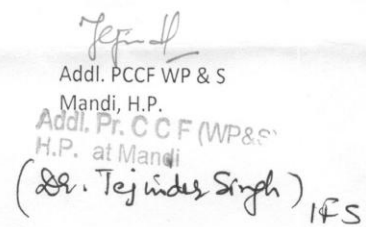 Addl. PCCF WP & S
Mandi, H.P.
Addl. Pr. C C F (WP&S)
H.P. at Mandi
(Dr. Tejinder Singh) IFS